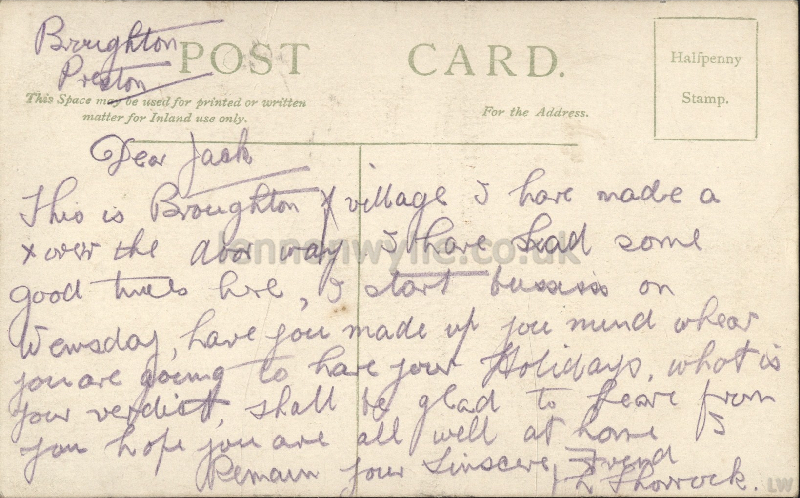 Broughton
Preston
POST CARD.
Halfpenny
Stamp.
This Space may be used for printed or written
matter for Inland use only.
For the Address.
Dear Jack
This is Broughton village I have made a
x over the door way I have had some
good times here, I start bussiss on
Wensday, have you made up you mind whear
you are going to have your Holidays, what is
your verdict, shall be glad to heare from
you hope you are all well at home I
Remain your Sinscere Freind
Shorrock.
lennonwylie.co.uk
LW